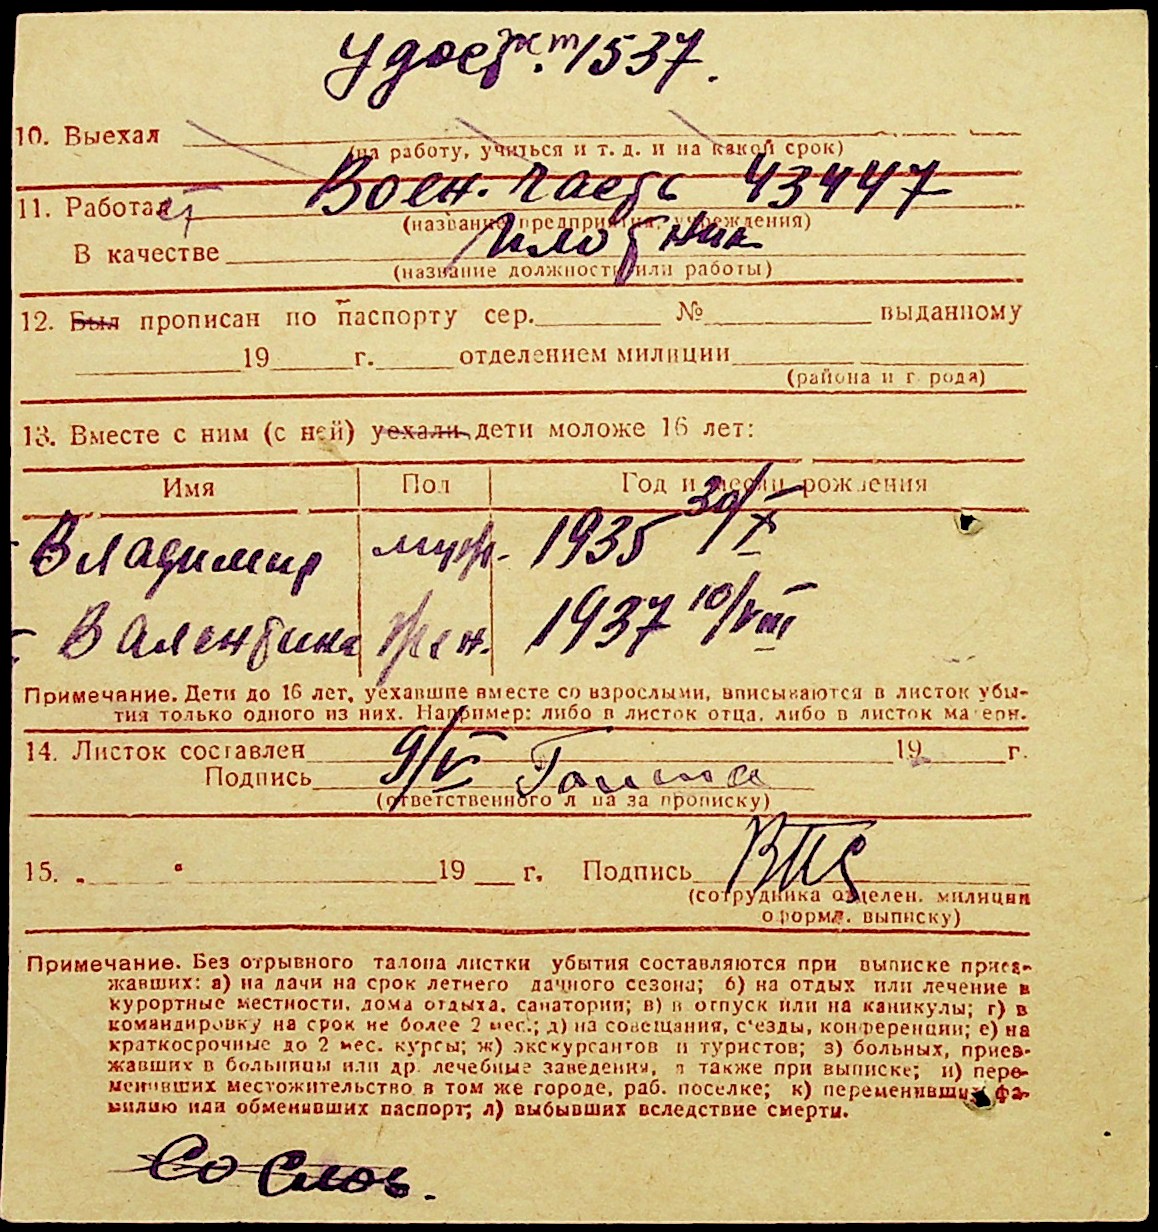 Удост. 1537.
10. Выехал
(на работу, учиться и т. д. и на какой срок)
Воен. часть 43447
11. Работает
(название предприятия, учреждения)
Плотник
В качестве
(название должности или работы)
12. Был прописан по паспорту сер. № выданному
19 г. отделением милиции
(района и города)
13. Вместе с ним (с ней) уехали дети моложе 16 лет:
Имя Пол Год и месяц рождения
Владимир муж. 1935 30/X
Валентина жен. 1937 10/VIII
Примечание. Дети до 16 лет, уехавшие вместе со взрослыми, вписываются в листок убы-
тия только одного из них. Например: либо в листок отца, либо в листок матери.
14. Листок составлен 9/V 19 г.
Подпись
(ответственного лица за прописку)
15. „ “ 19 г. Подпись
(сотрудника отделен. милиции
оформл. выписку)
Примечание. Без отрывного талона листки убытия составляются при выписке приез-
жавших: а) на дачи на срок летнего дачного сезона; б) на отдых или лечение в
курортные местности, дома отдыха, санатории; в) в отпуск или на каникулы; г) в
командировку на срок не более 2 мес.; д) на совещания, с'езды, конференции; е) на
краткосрочные до 2 мес. курсы; ж) экскурсантов и туристов; з) больных, приез-
жавших в больницы или др. лечебные заведения, а также при выписке; и) пере-
менивших местожительство в том же городе, раб. поселке; к) переменивших фа-
милию или обменявших паспорт; л) выбывших вследствие смерти.
Со слов.